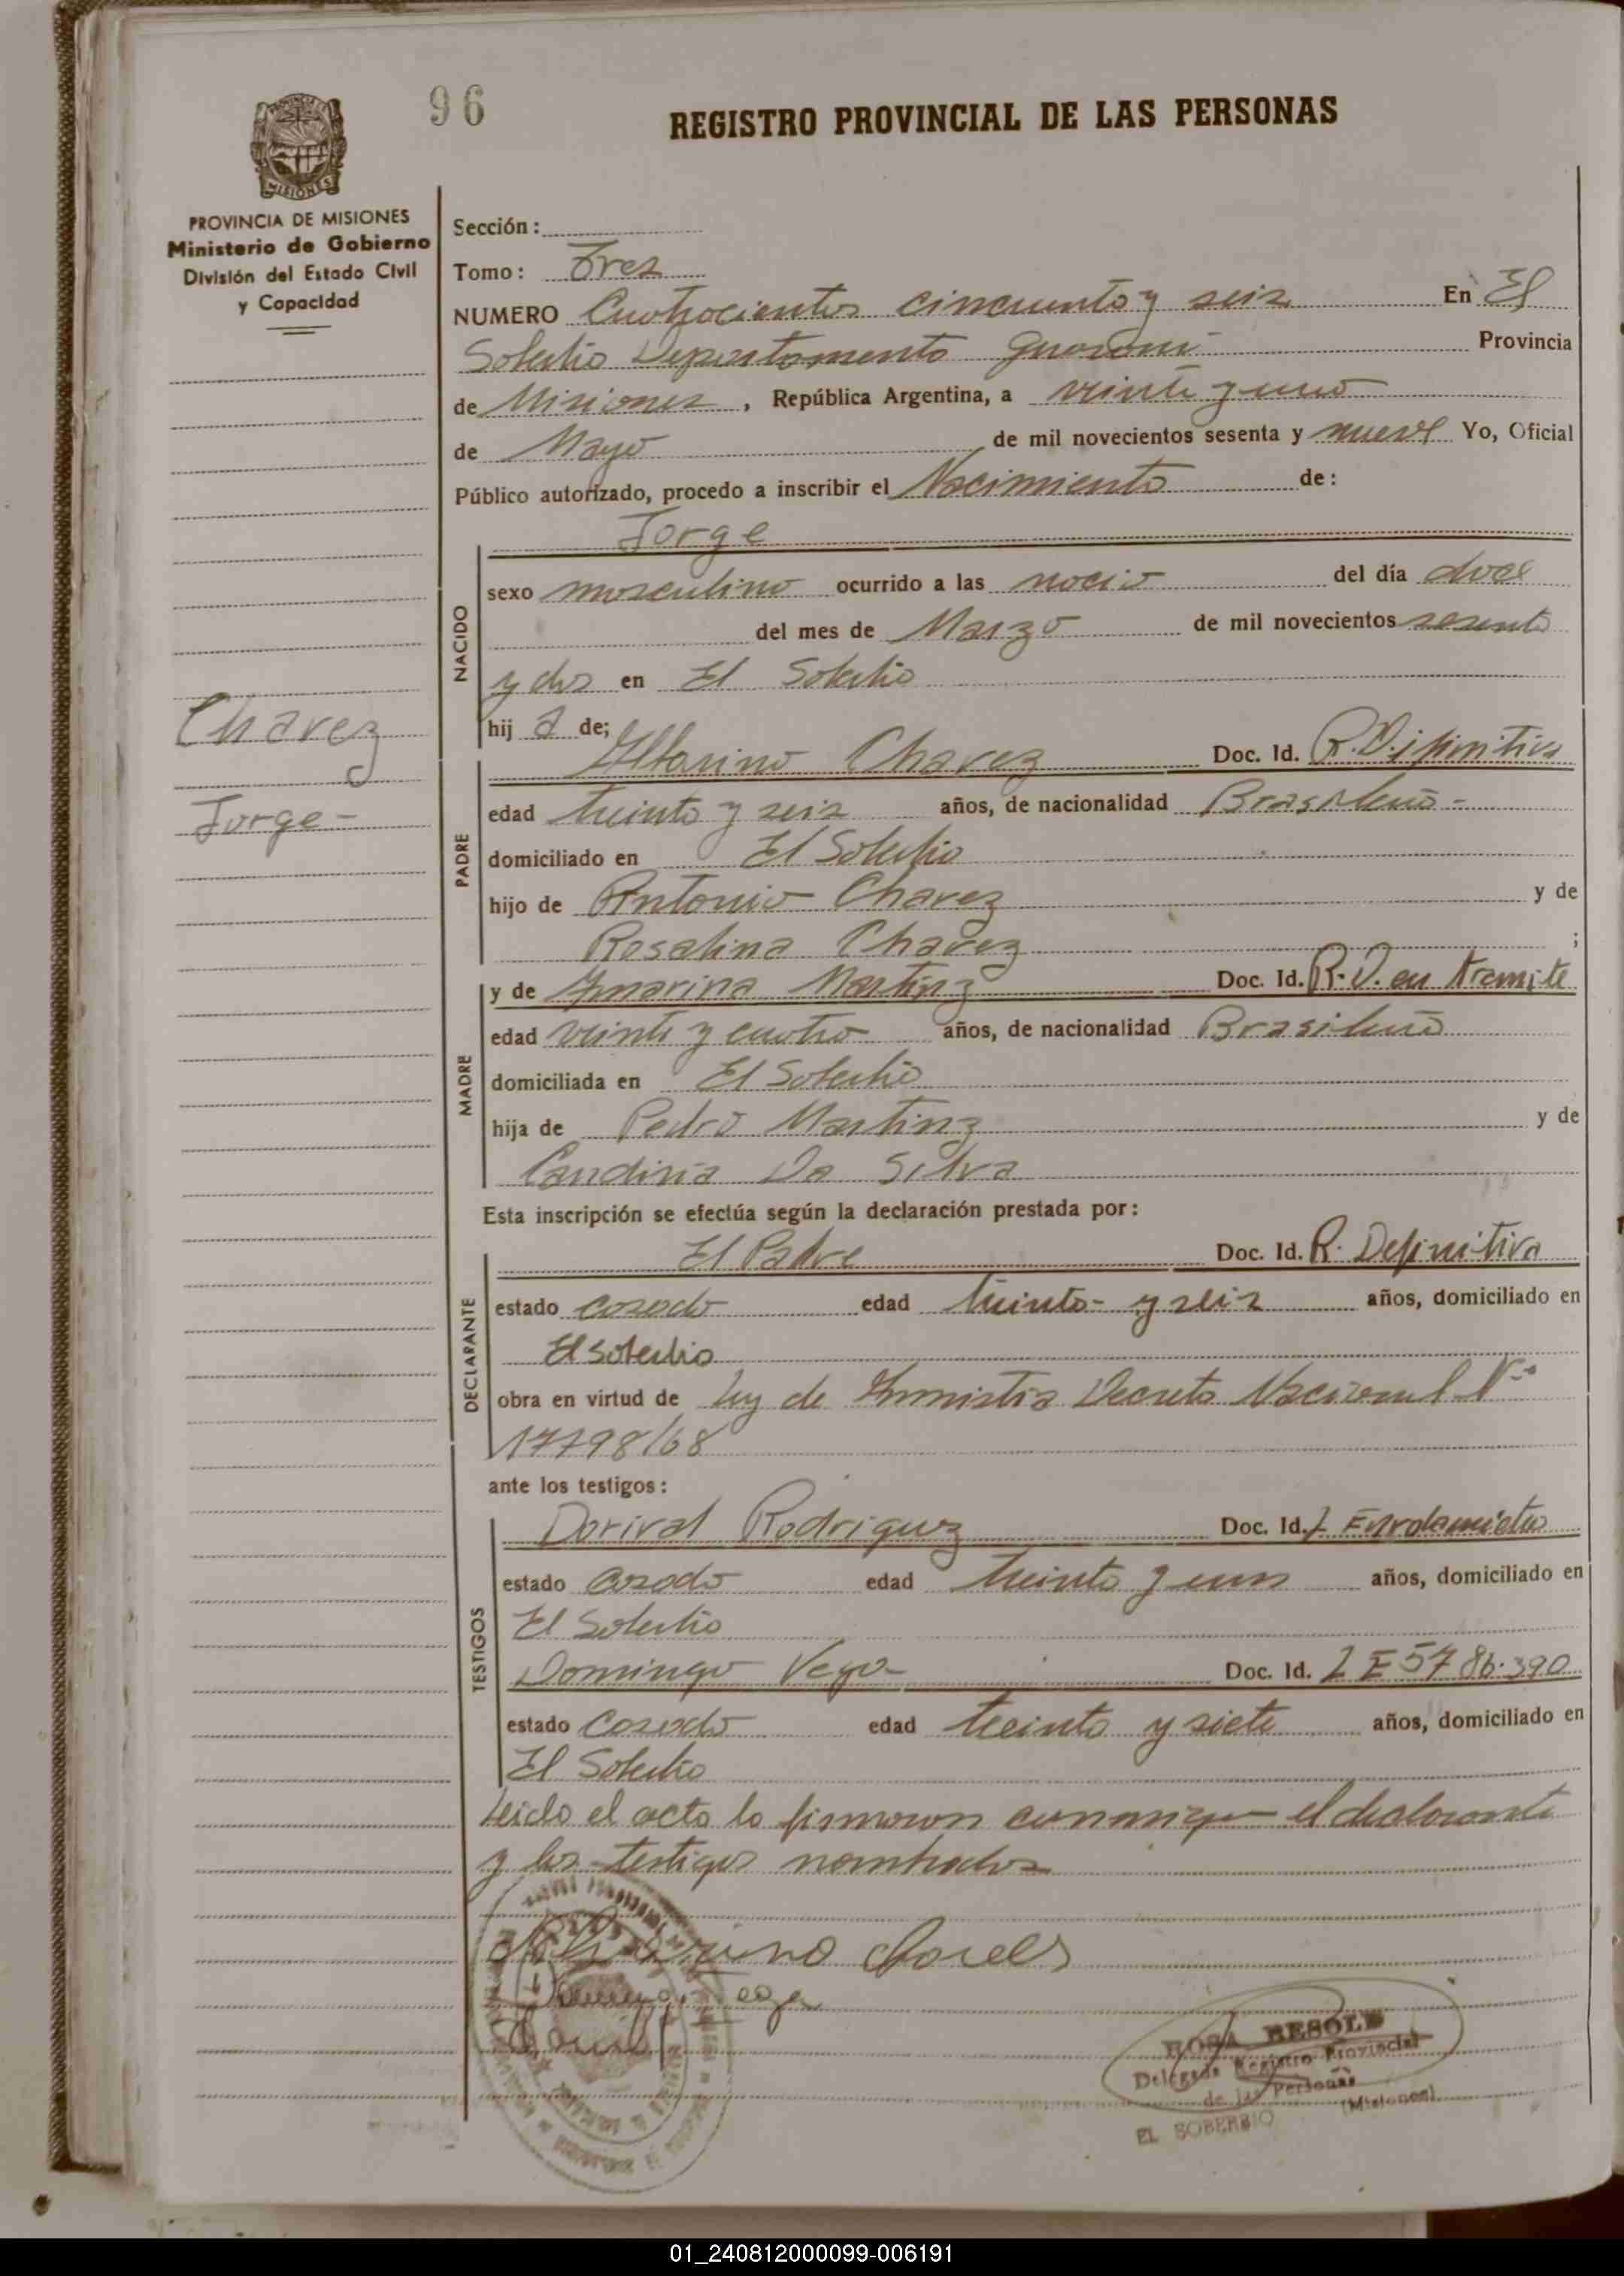 96
REGISTRO PROVINCIAL DE LAS PERSONAS
PROVINCIA DE MISIONES
Ministerio de Gobierno
División del Estado Civil
y Capacidad
Sección:
Tomo: Tres
NUMERO Cuatrocientos cincuenta y seis En El
Soberbio Departamento Guarani Provincia
de Misiones, República Argentina, a veinte y uno
de Mayo de mil novecientos sesenta y nueve Yo, Oficial
Público autorizado, procedo a inscribir el Nacimiento de:
Jorge
NACIDO
sexo masculino ocurrido a las del día doce
del mes de Marzo de mil novecientos sesenta
y dos en El Soberbio
hij o de;
Chavez
Jorge-
PADRE
Chavez Doc. Id. R. Difinitiva
edad treinta y seis años, de nacionalidad Brasileño-
domiciliado en El Soberbio
hijo de Antonio Chavez y de
Rosalina Chavez ;
MADRE
y de Martinz Doc. Id. R. D. en tramite
edad veinte y cuatro años, de nacionalidad Brasileño
domiciliada en El Soberbio
hija de Pedro Martinz y de
Candina Da Silva
Esta inscripción se efectúa según la declaración prestada por:
DECLARANTE
El Padre Doc. Id. R. Definitiva
estado casado edad treinta- y seis años, domiciliado en
El Soberbio
obra en virtud de Ley de Amnistia Decreto Nacional Nº
17798/68
ante los testigos:
TESTIGOS
Dorival Rodriguez Doc. Id. L Enrolamiento
estado casado edad treinta y uno años, domiciliado en
El Soberbio
Domingo Vega Doc. Id. L E 57 86.390
estado Casado edad treinta y siete años, domiciliado en
El Soberbio
Leido el acta la firmaron conmigo el declarante
y los testigos nombrados
ROSA BESOLD
Delegada Registro Provincial
de las Personas
(Misiones)
EL SOBERBIO
01_240812000099-006191